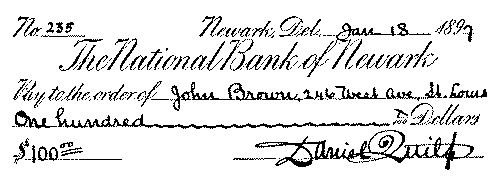 No. 235 Newark, Del. Jan 18 1897
The National Bank of Newark
Pay to the order of John Brown, 246 West Ave., St. Louis
One hundred Dollars
$100.00 Daniel Quilp